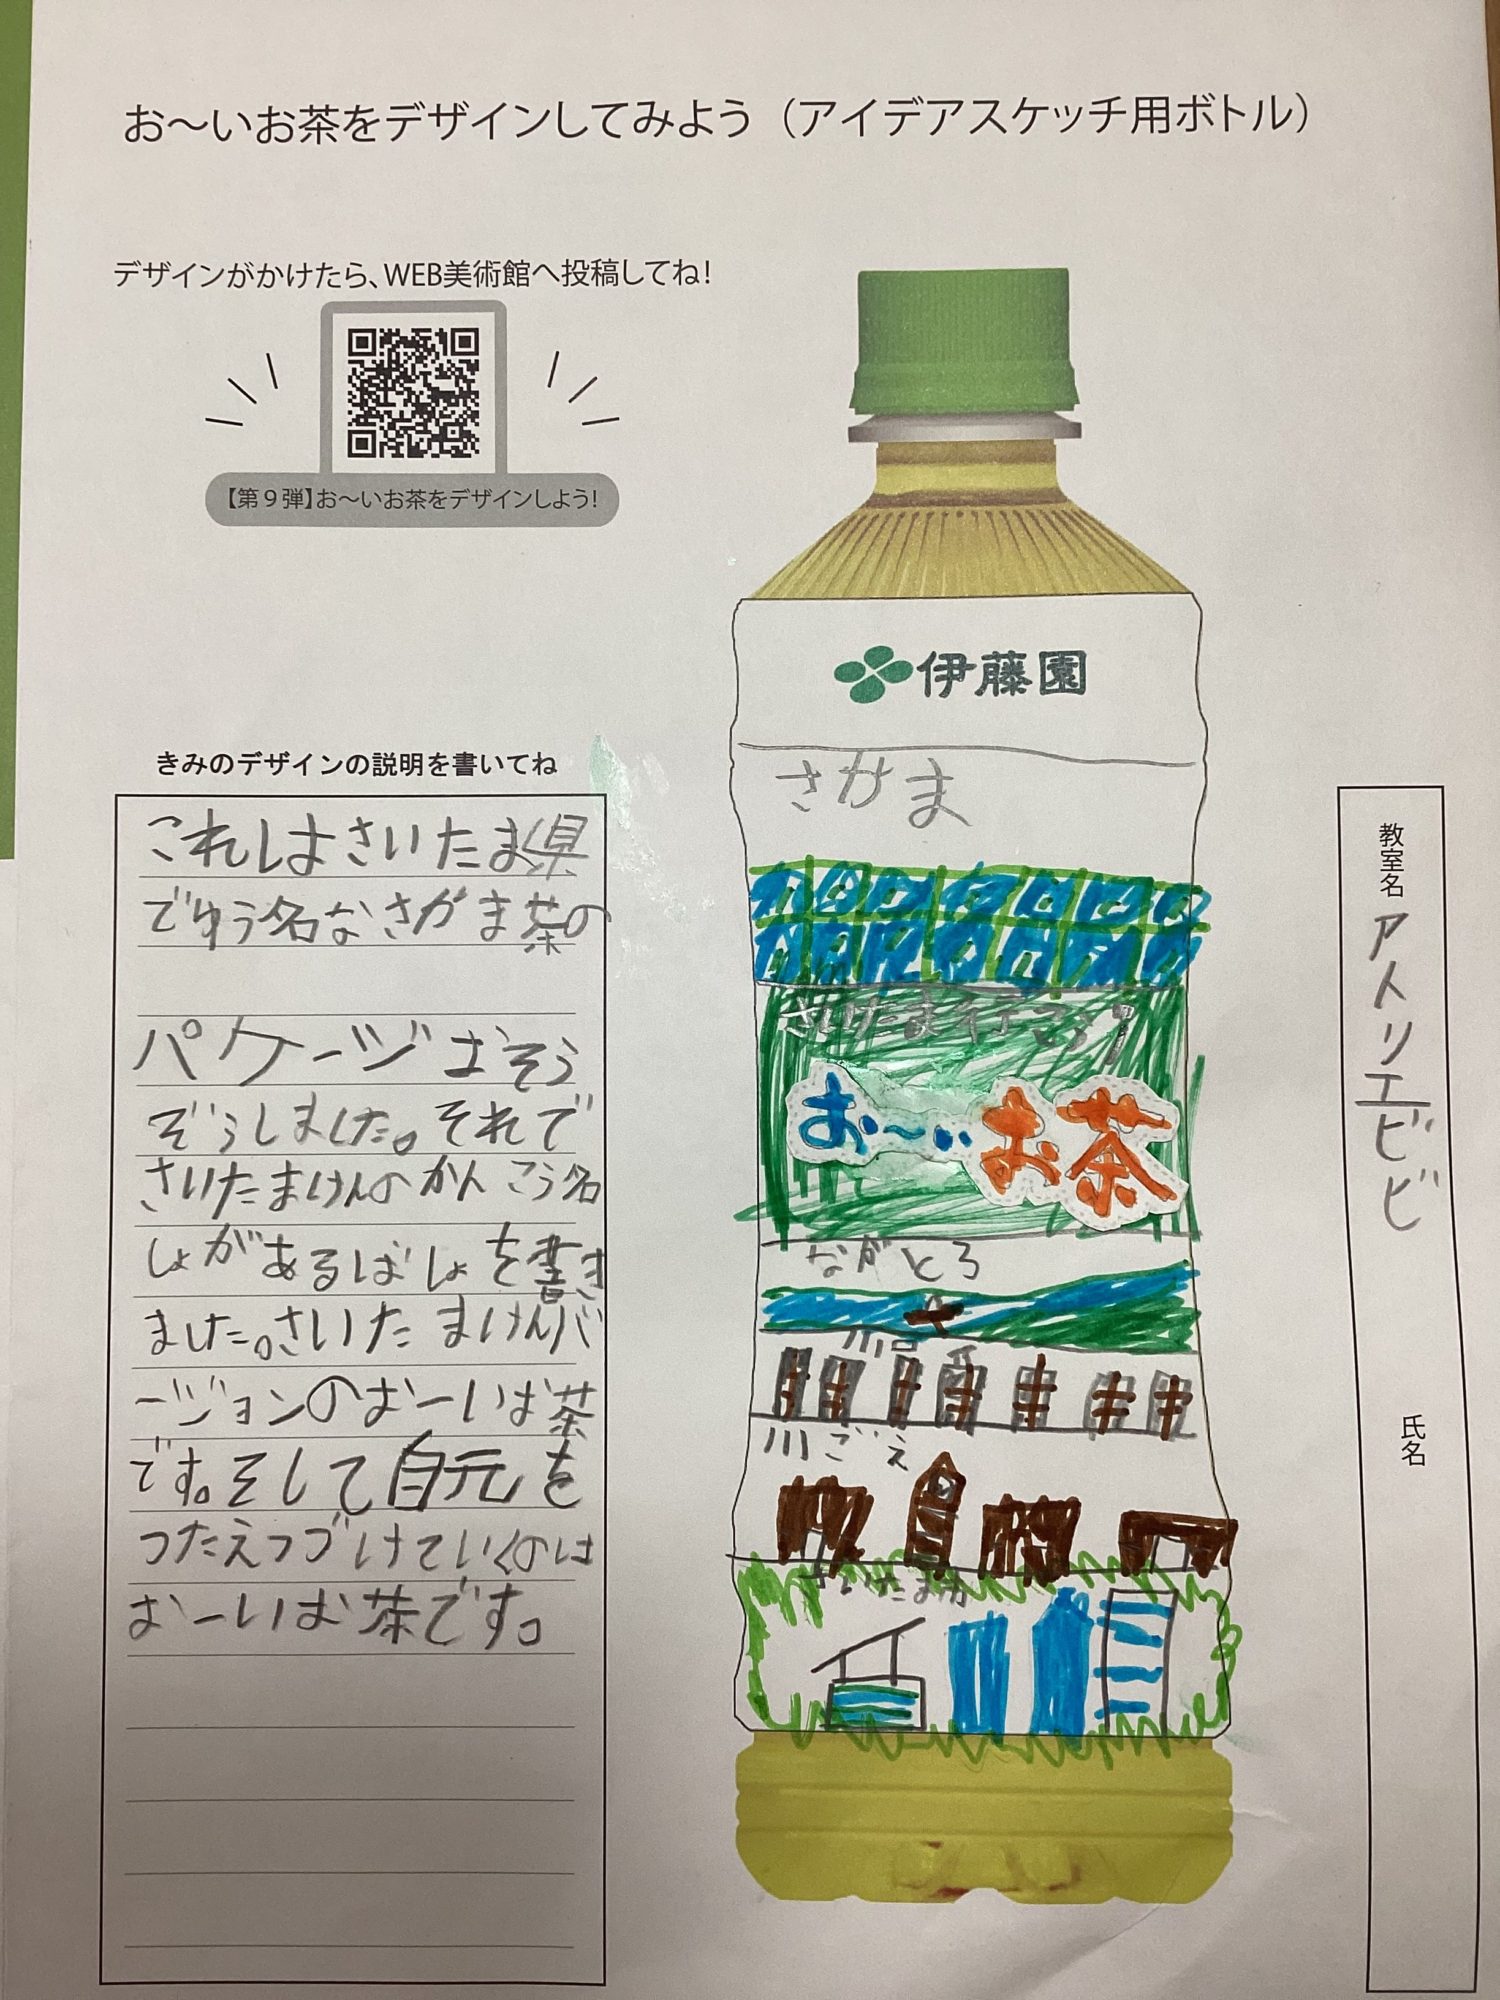 お〜いお茶をデザインしてみよう（アイデアスケッチ用ボトル）
デザインがかけたら、WEB美術館へ投稿してね！
【第９弾】お〜いお茶をデザインしよう！
きみのデザインの説明を書いてね
これはさいたま県
でゆう名なさがま茶の
パケージおそう
ぞうしました。それで
さいたまけんのかんこう名
しょがあるばしょを書き
ました。さいたまけんバ
ージョンのおーいお茶
です。そして自元を
つたえつづけていくのは
おーいお茶です。
伊藤園
さがま
さいたま
お〜いお茶
ながとろ
川ごえ
さいたま
教室名
アトリエビビ
氏名